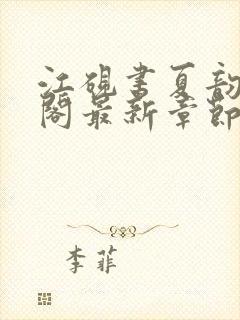 江砚书夏韵
阁最新章节
李菲